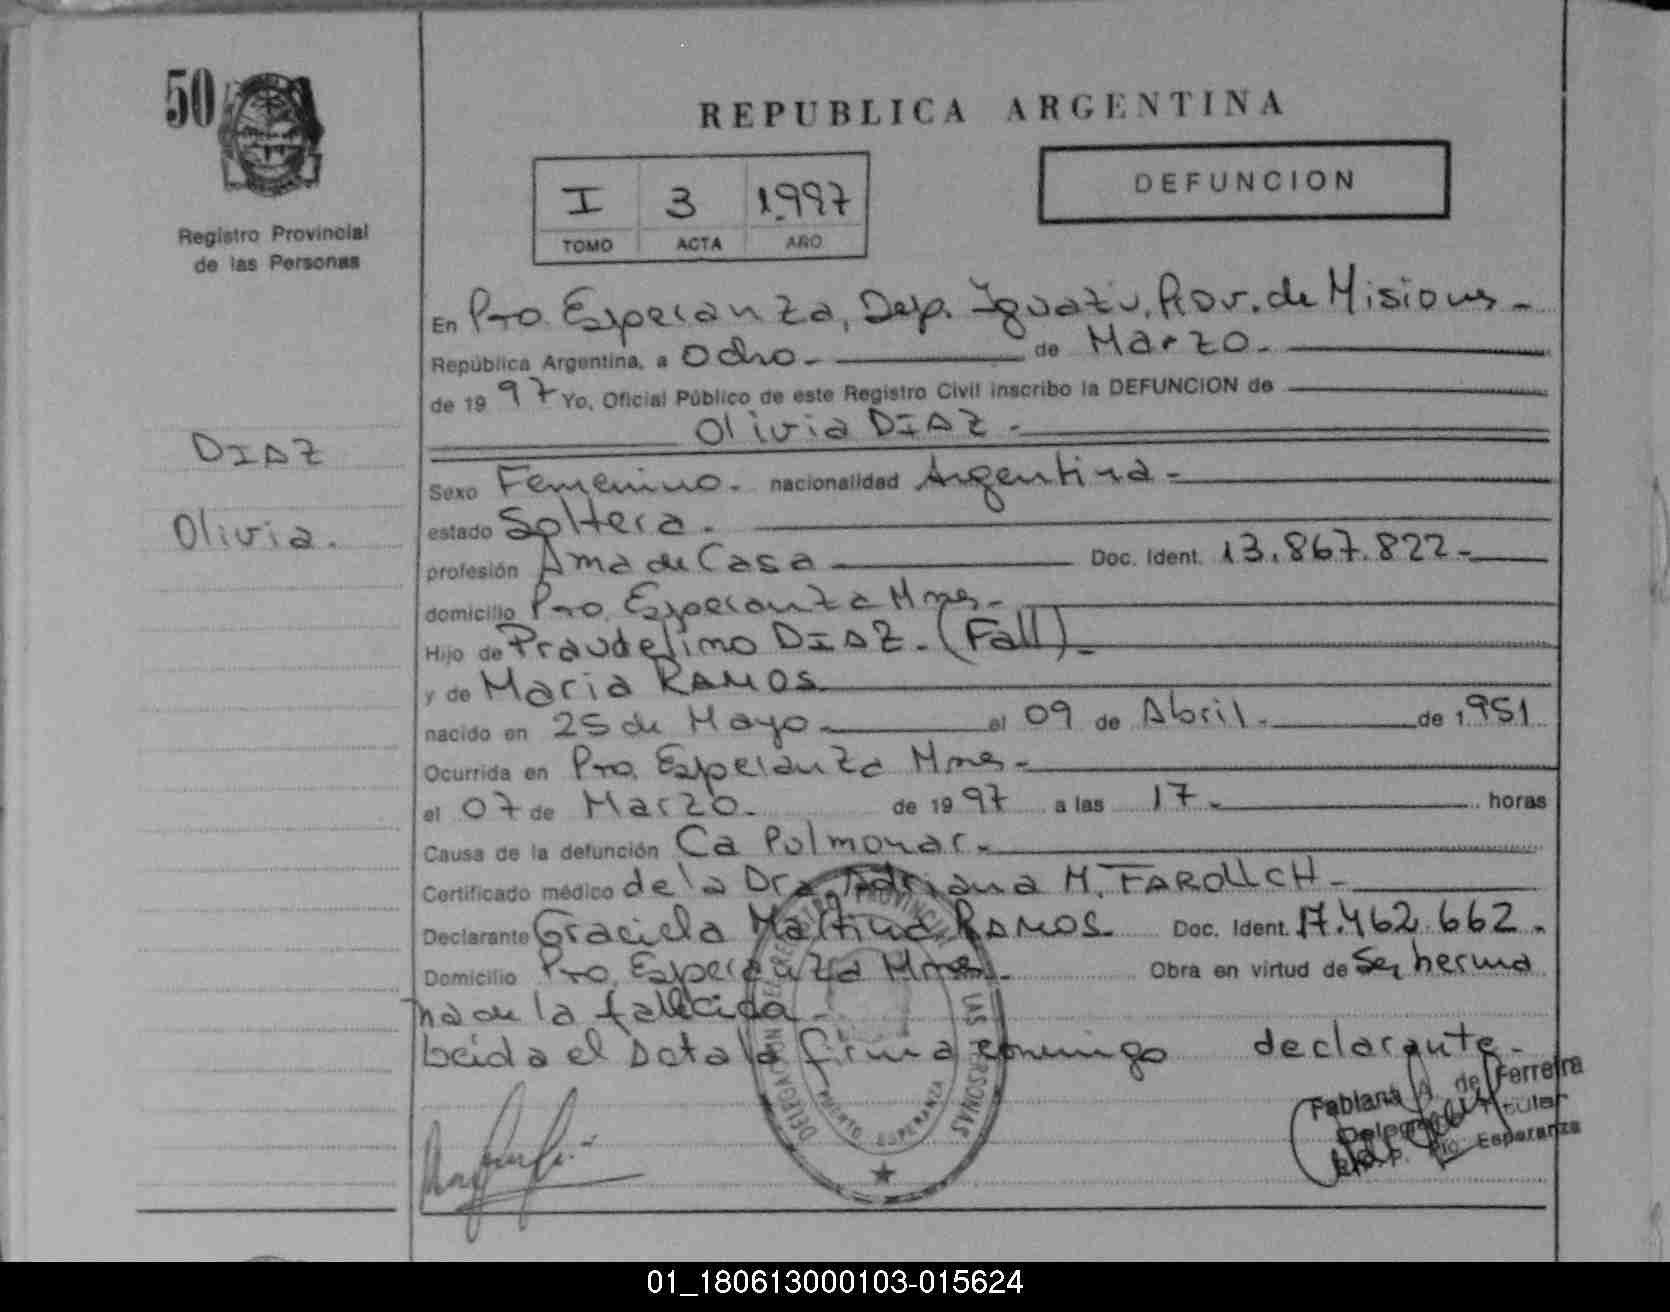 50
Registro Provincial
de las Personas
DIAZ
Olivia.
REPUBLICA ARGENTINA
I 3 1.997
TOMO ACTA AÑO
DEFUNCION
En Pto. Esperanza, Dep. Iguazú, Prov. de Misiones -
República Argentina, a Ocho - de Marzo -
de 19 97 Yo, Oficial Público de este Registro Civil inscribo la DEFUNCION de
Olivia DIAZ -
Sexo Femenino - nacionalidad Argentina -
estado Soltera.
profesión Ama de Casa Doc. Ident. 13.867.822 -
domicilio Pto. Esperanza Mnes -
Hijo de DIAZ - (Fall) -
y de Maria RAMOS
nacido en 25 de Mayo - el 09 de Abril - de 1.951
Ocurrida en Pto. Esperanza Mnes -
el 07 de Marzo - de 19 97 a las 17 - horas
Causa de la defunción Ca Pulmonar -
Certificado médico de la Dra. Adriana M. -
Declarante Graciela Martina RAMOS Doc. Ident. 17.462.662 -
Domicilio Pto. Esperanza Mnes - Obra en virtud de Ser herma
na de la fallecida -
Leida el Acta la firma conmigo declarante -
DELEGACION DEL REGISTRO PROVINCIAL DE LAS PERSONAS
PUERTO ESPERANZA
Fabiana A. de Ferreira
Titular
R.P.P. Pto. Esperanza
01_180613000103-015624